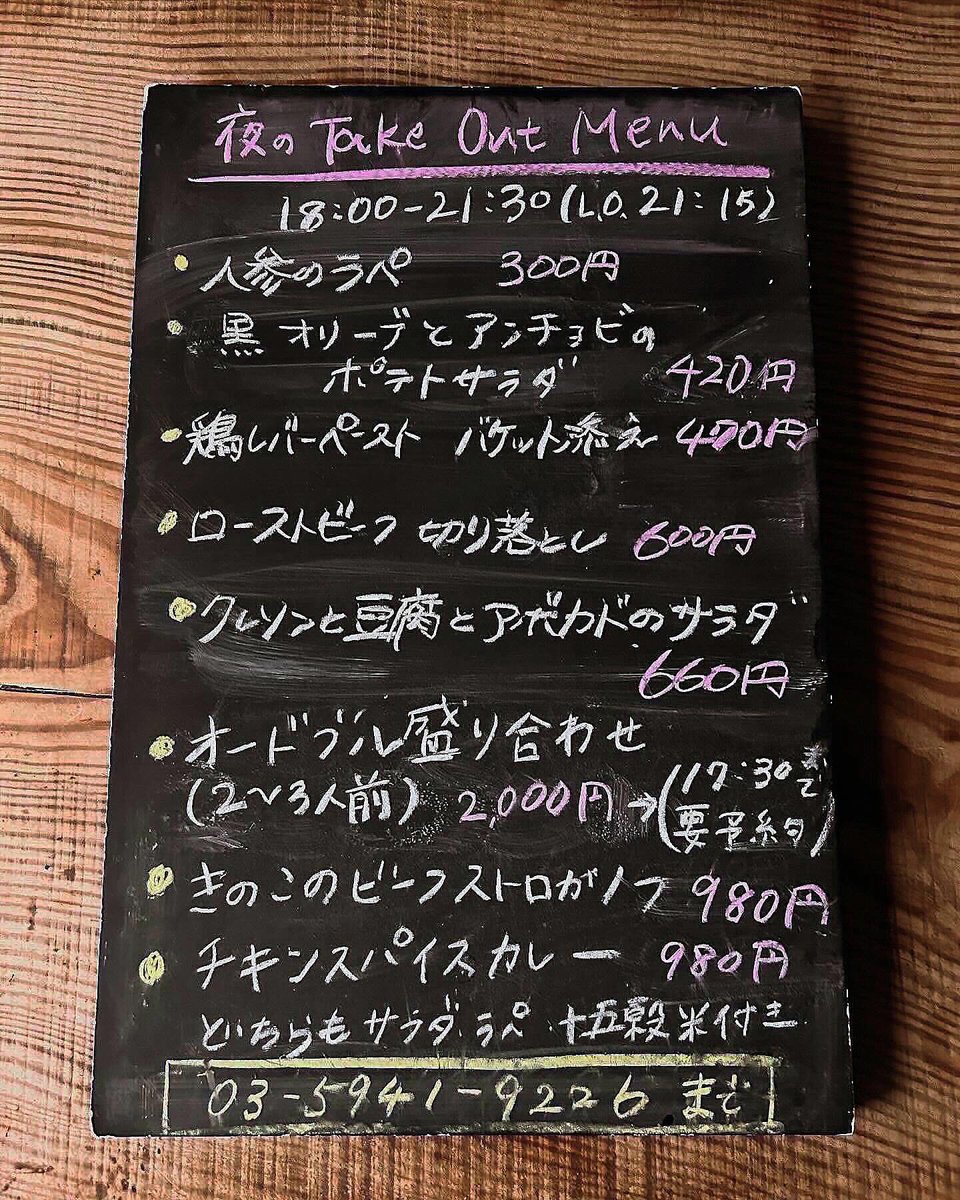 夜の Take Out Menu
18:00-21:30(L.O.21:15)
人参のラペ 300円
黒オリーブとアンチョビの
ポテトサラダ 420円
鶏レバーペースト バケット添え 470円
ローストビーフ 切り落とし 600円
クレソンと豆腐とアボカドのサラダ
660円
オードブル盛り合わせ
(2~3人前) 2,000円→(17:30まで
要予約)
きのこのビーフストロガノフ 980円
チキンスパイスカレー 980円
どちらもサラダ、ラペ 十五穀米付き
03-5941-9226 まで